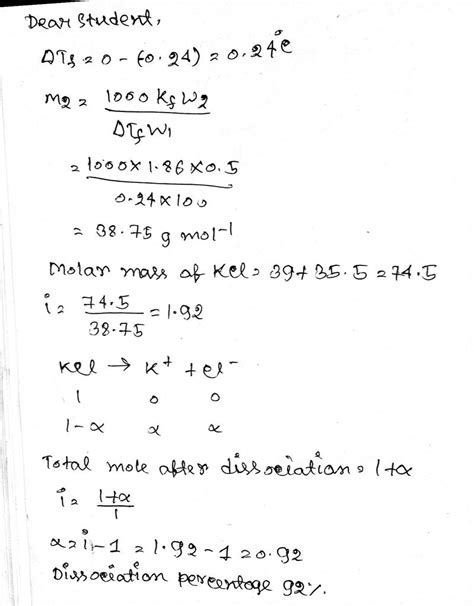 Dear Student,
ΔTf = 0 - (0.24) = 0.24°C
M2 = 1000 Kf W2
ΔTf W1
= 1000 × 1.86 × 0.5
0.24 × 100
= 38.75 g mol⁻¹
Molar mass of KCl = 39 + 35.5 = 74.5
i = 74.5
38.75
= 1.92
KCl → K⁺ + Cl⁻
1 0 0
1-α α α
Total mole after dissociation = 1+α
i = 1+α
1
α = i - 1 = 1.92 - 1 = 0.92
Dissociation percentage 92%.